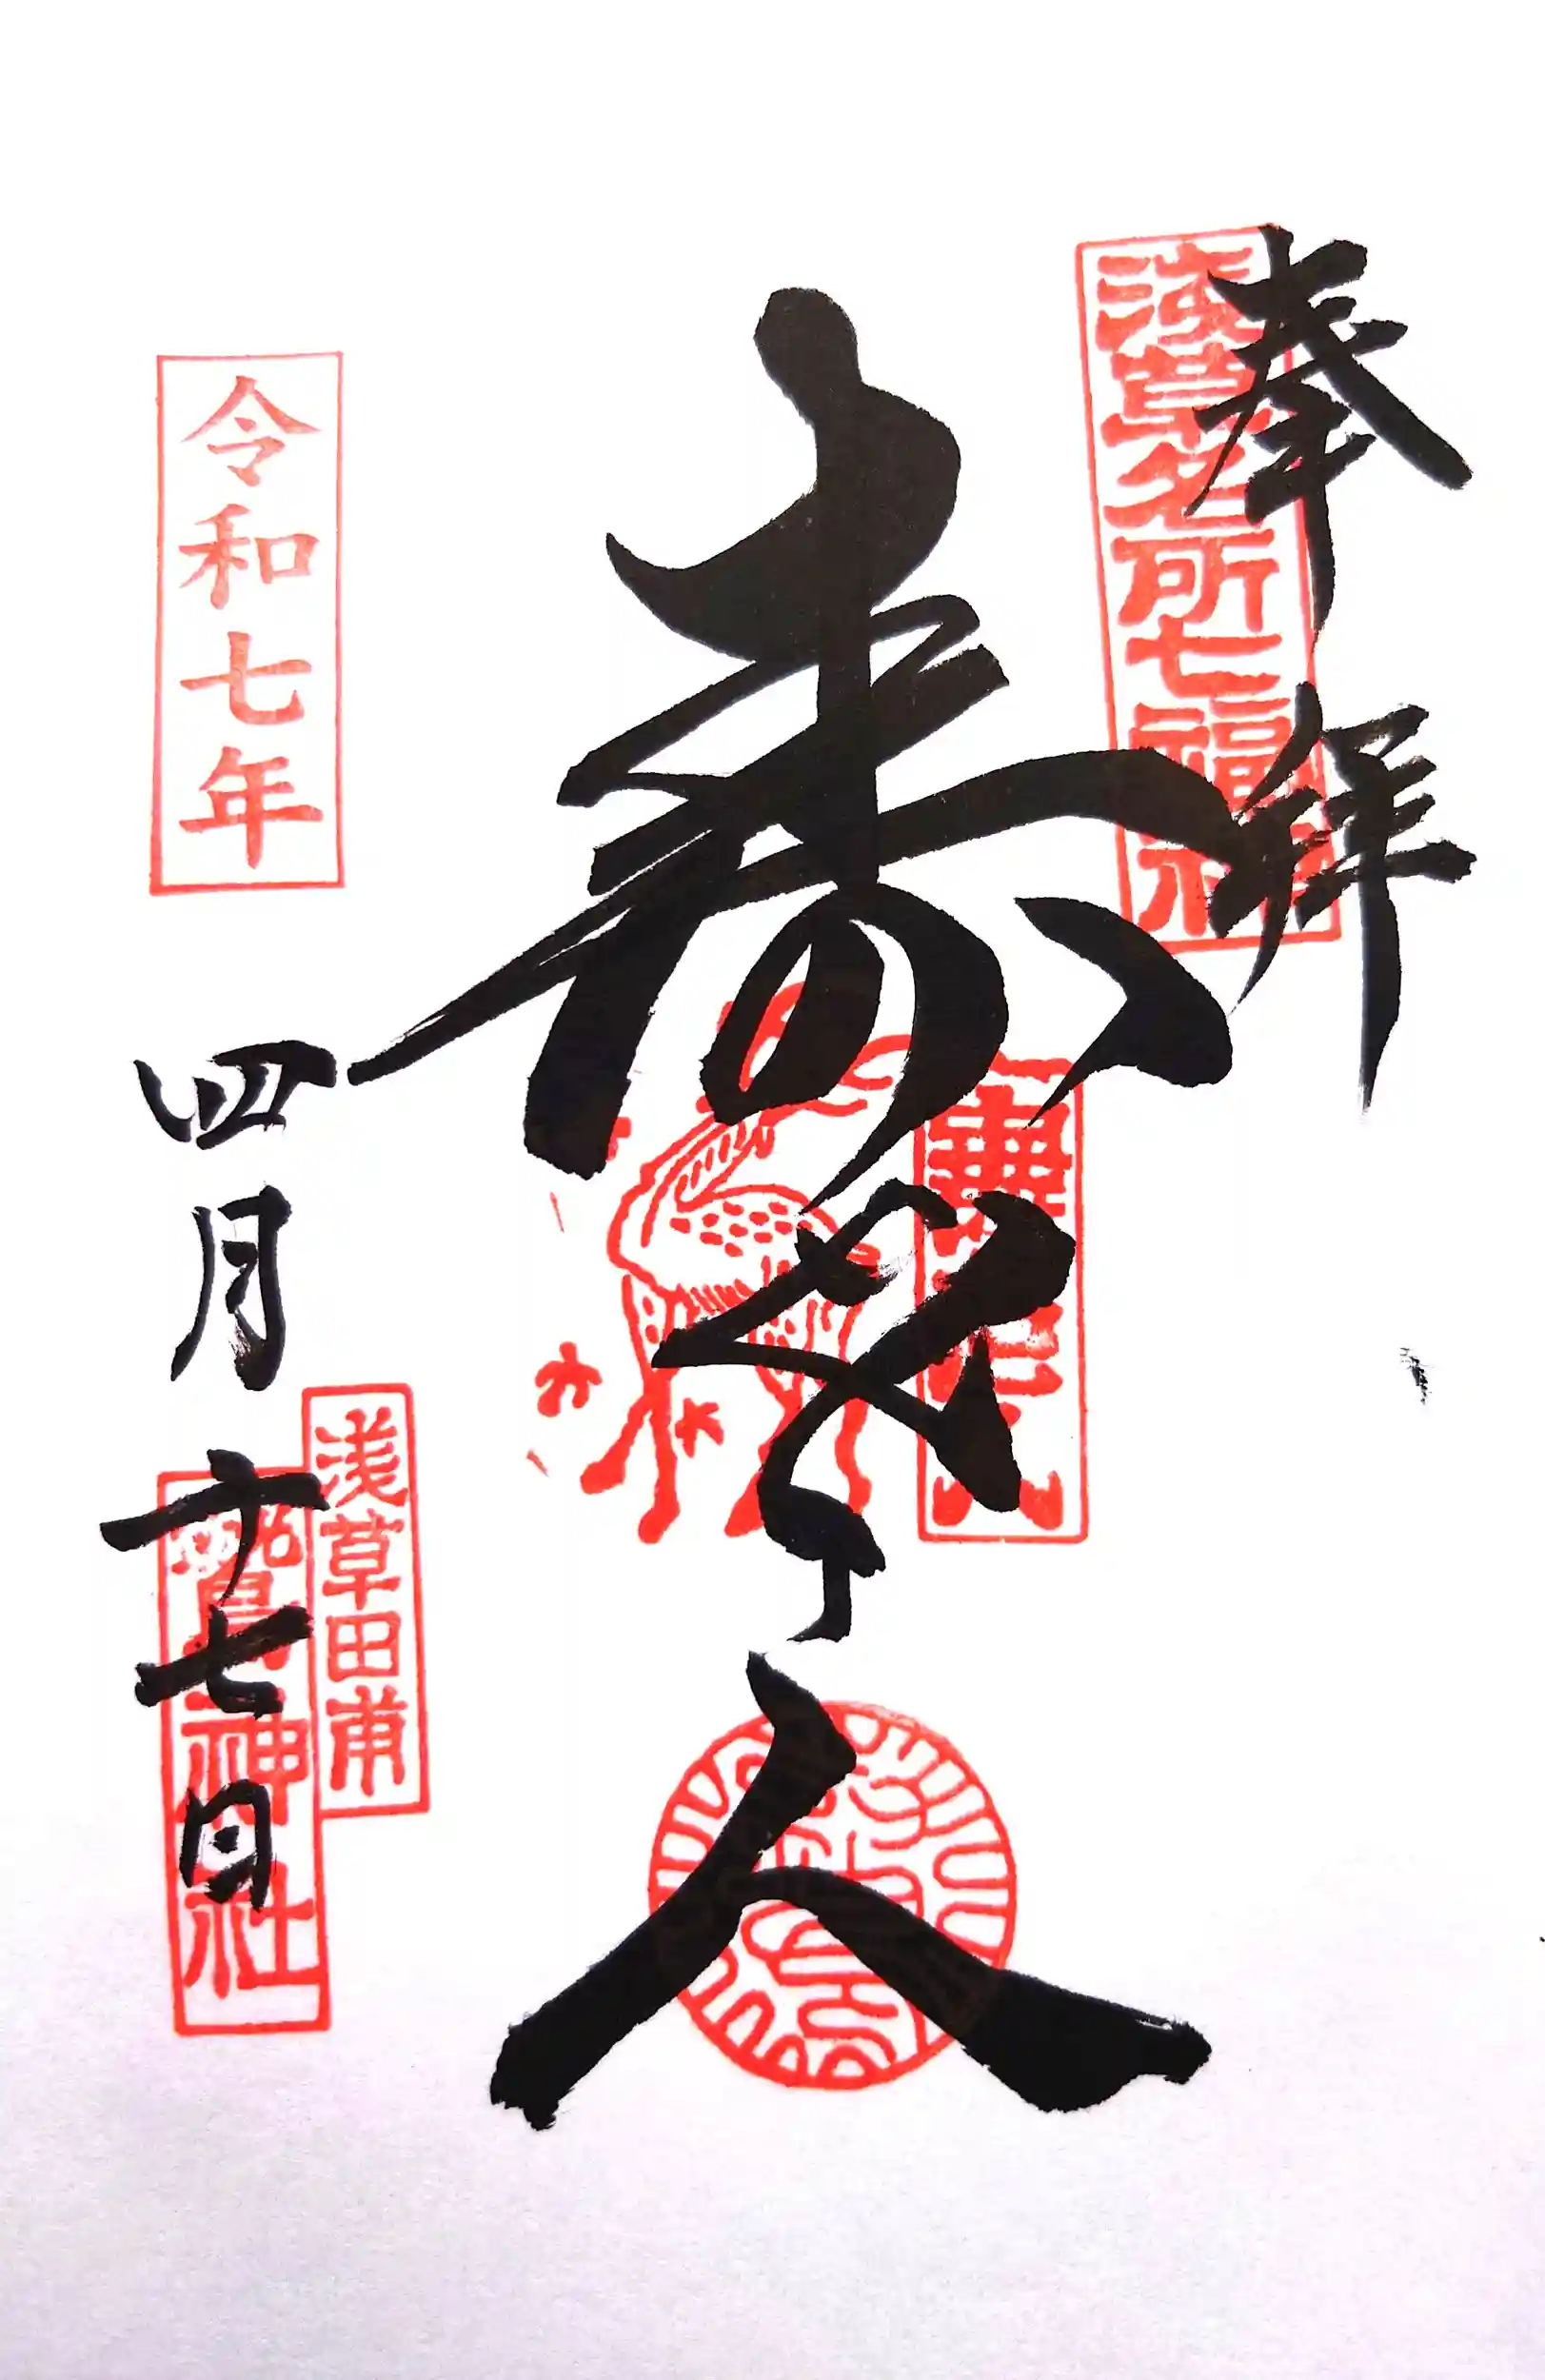 奉拝
浅草名所七福神
寿老人
寿老人
令和七年
四月十七日
浅草田甫
鷲神社